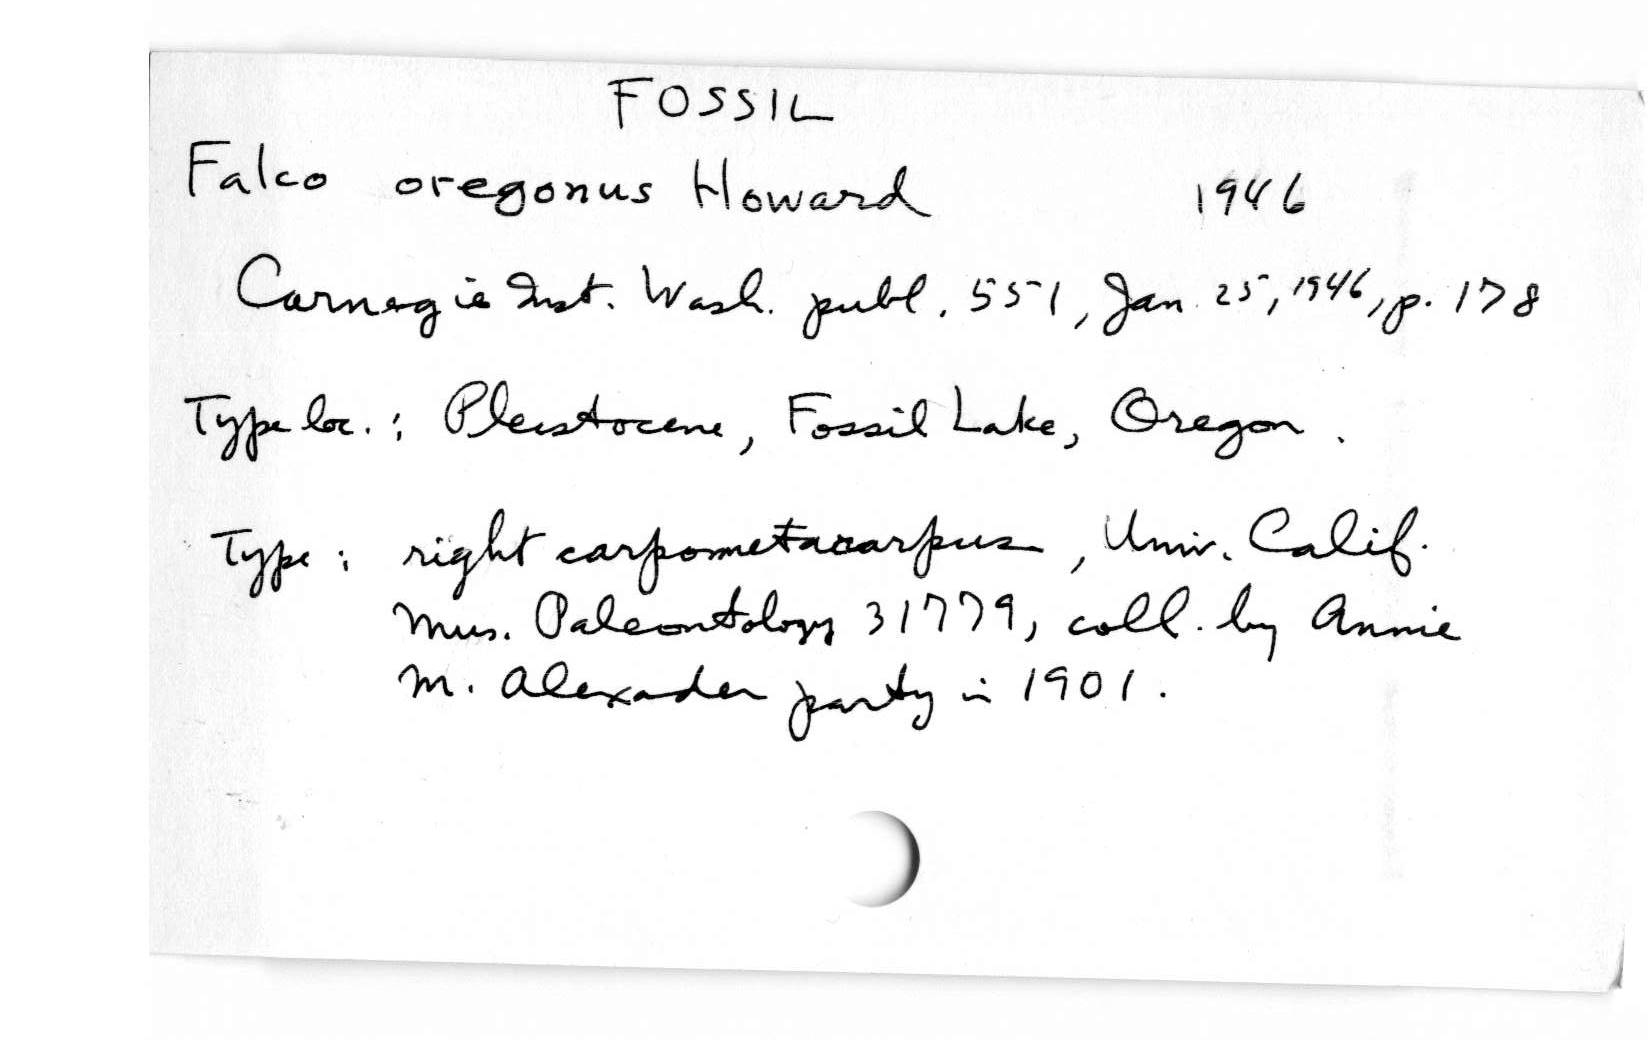 FOSSIL
Falco oregonus Howard 1946
Carnegie Inst. Wash. publ. 551, Jan. 25, 1946, p. 178
Type loc.: Pleistocene, Fossil Lake, Oregon.
Type: right carpometacarpus, Univ. Calif.
Mus. Paleontology 31779, coll. by Annie
M. Alexader party in 1901.